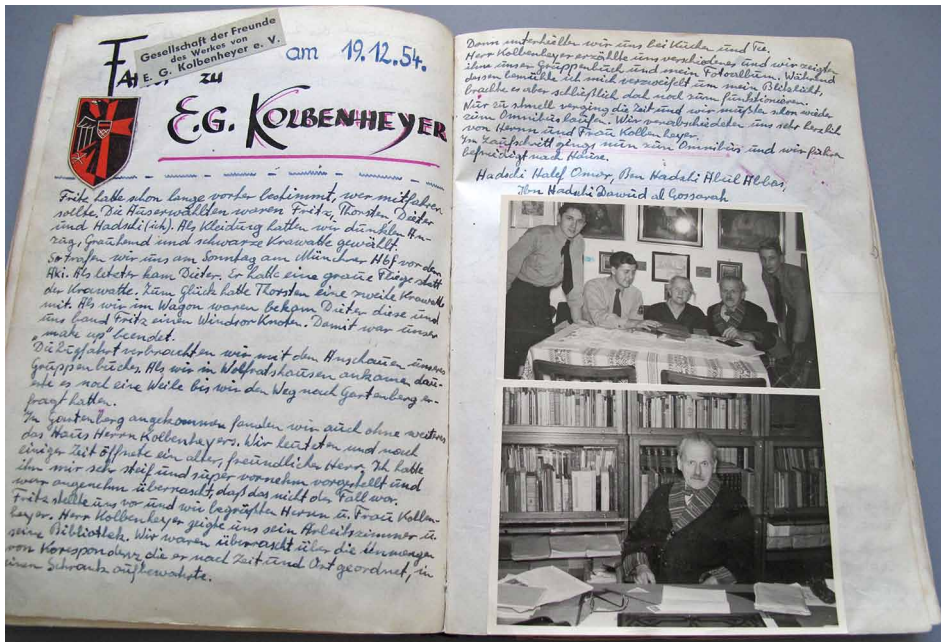 Fahrt zu
Gesellschaft der Freunde
des Werkes von
E. G. Kolbenheyer e. V.
am 19.12.54.
E.G. KOLBENHEYER
Fritz hatte schon lange vorher bestimmt, wer mitfahren
sollte. Die Auserwählten waren Fritz, Thorsten, Dieter
und Hadschi (ich). Als Kleidung hatten wir dunklen An-
zug, Grauhemd und schwarze Krawatte gewählt.
So trafen wir uns am Sonntag am Münchner Hbf vor dem
Aki. Als letzter kam Dieter. Er hatte eine graue Fliege statt
der Krawatte. Zum Glück hatte Thorsten eine zweite Krawatte
mit. Als wir im Wagon waren bekam Dieter diese und
uns band Fritz einen Windsor Knoten. Damit war unser
"make up" beendet.
Die Zugfahrt verbrachten wir mit dem Anschauen unseres
Gruppenbuches. Als wir in Wolfratshausen ankamen dau-
erte es noch eine Weile bis wir den Weg nach Gartenberg er-
fragt hatten.
In Gartenberg angekommen fanden wir auch ohne weiteres
das Haus Herrn Kolbenheyers. Wir leuteten und nach
einiger Zeit öffnete ein alter, freundlicher Herr. Ich hatte
ihn mir sehr steif und super vornehm vorgestellt und
war angenehm überrascht, daß das nicht der Fall war.
Fritz stellte uns vor und wir begrüßten Herrn u. Frau Kolben-
heyer. Herr Kolbenheyer zeigte uns sein Arbeitszimmer u.
seine Bibliothek. Wir waren überrascht über die Unmengen
von Korespondenz die er nach Zeit und Ort geordnet, in
einem Schrank aufbewahrte.
Dann unterhielten wir uns bei Kuchen und Tee.
Herr Kolbenheyer erzählte uns verschiedenes und wir zeigten
ihm unser Gruppenbuch und mein Fotoalbum. Während
dessen bemühte ich mich verzweifelt um mein Blitzlicht,
brachte es aber schließlich doch noch zum funktionieren.
Nur zu schnell verging die Zeit und wir mußten schon wieder
zum Omnibus laufen. Wir verabschiedeten uns sehr herzlich
von Herrn und Frau Kolbenheyer.
Im Laufschritt gings nun zum Omnibus und wir fuhren
befriedigt nach Hause.
Hadschi Halef Omar, Ben Hadschi Abul Abbas,
Ibn Hadschi Dawud al Gossarah